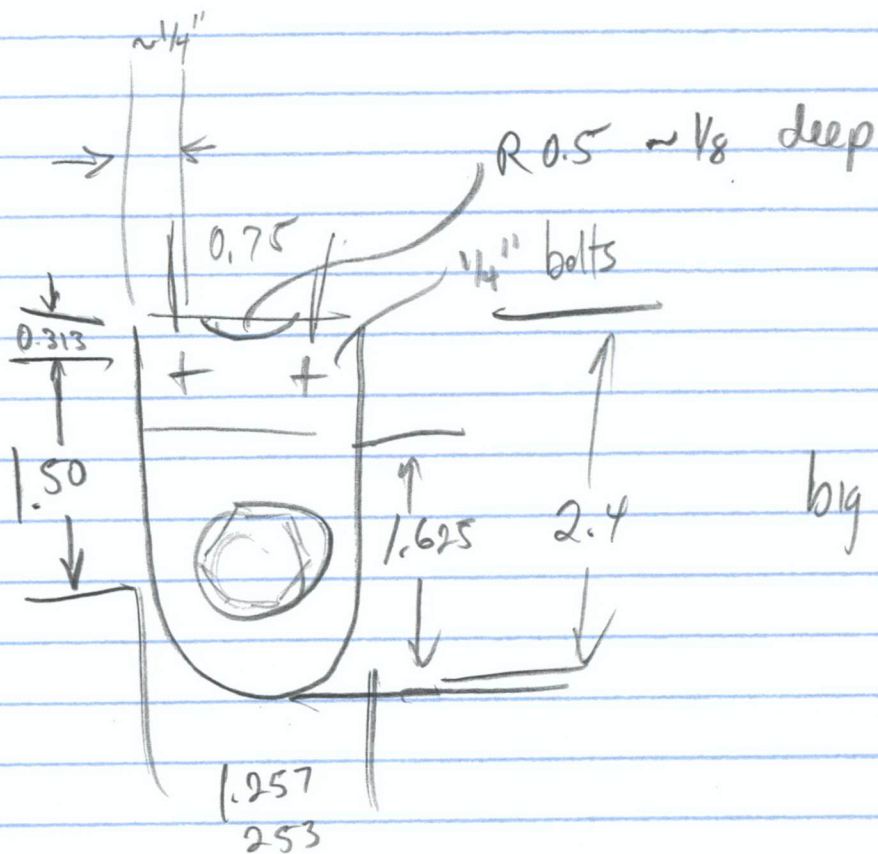 ~1/4"
R 0.5 ~ 1/8 deep
0.75
1/4" bolts
0.313
1.50
1.625
2.4
big
1.257
253